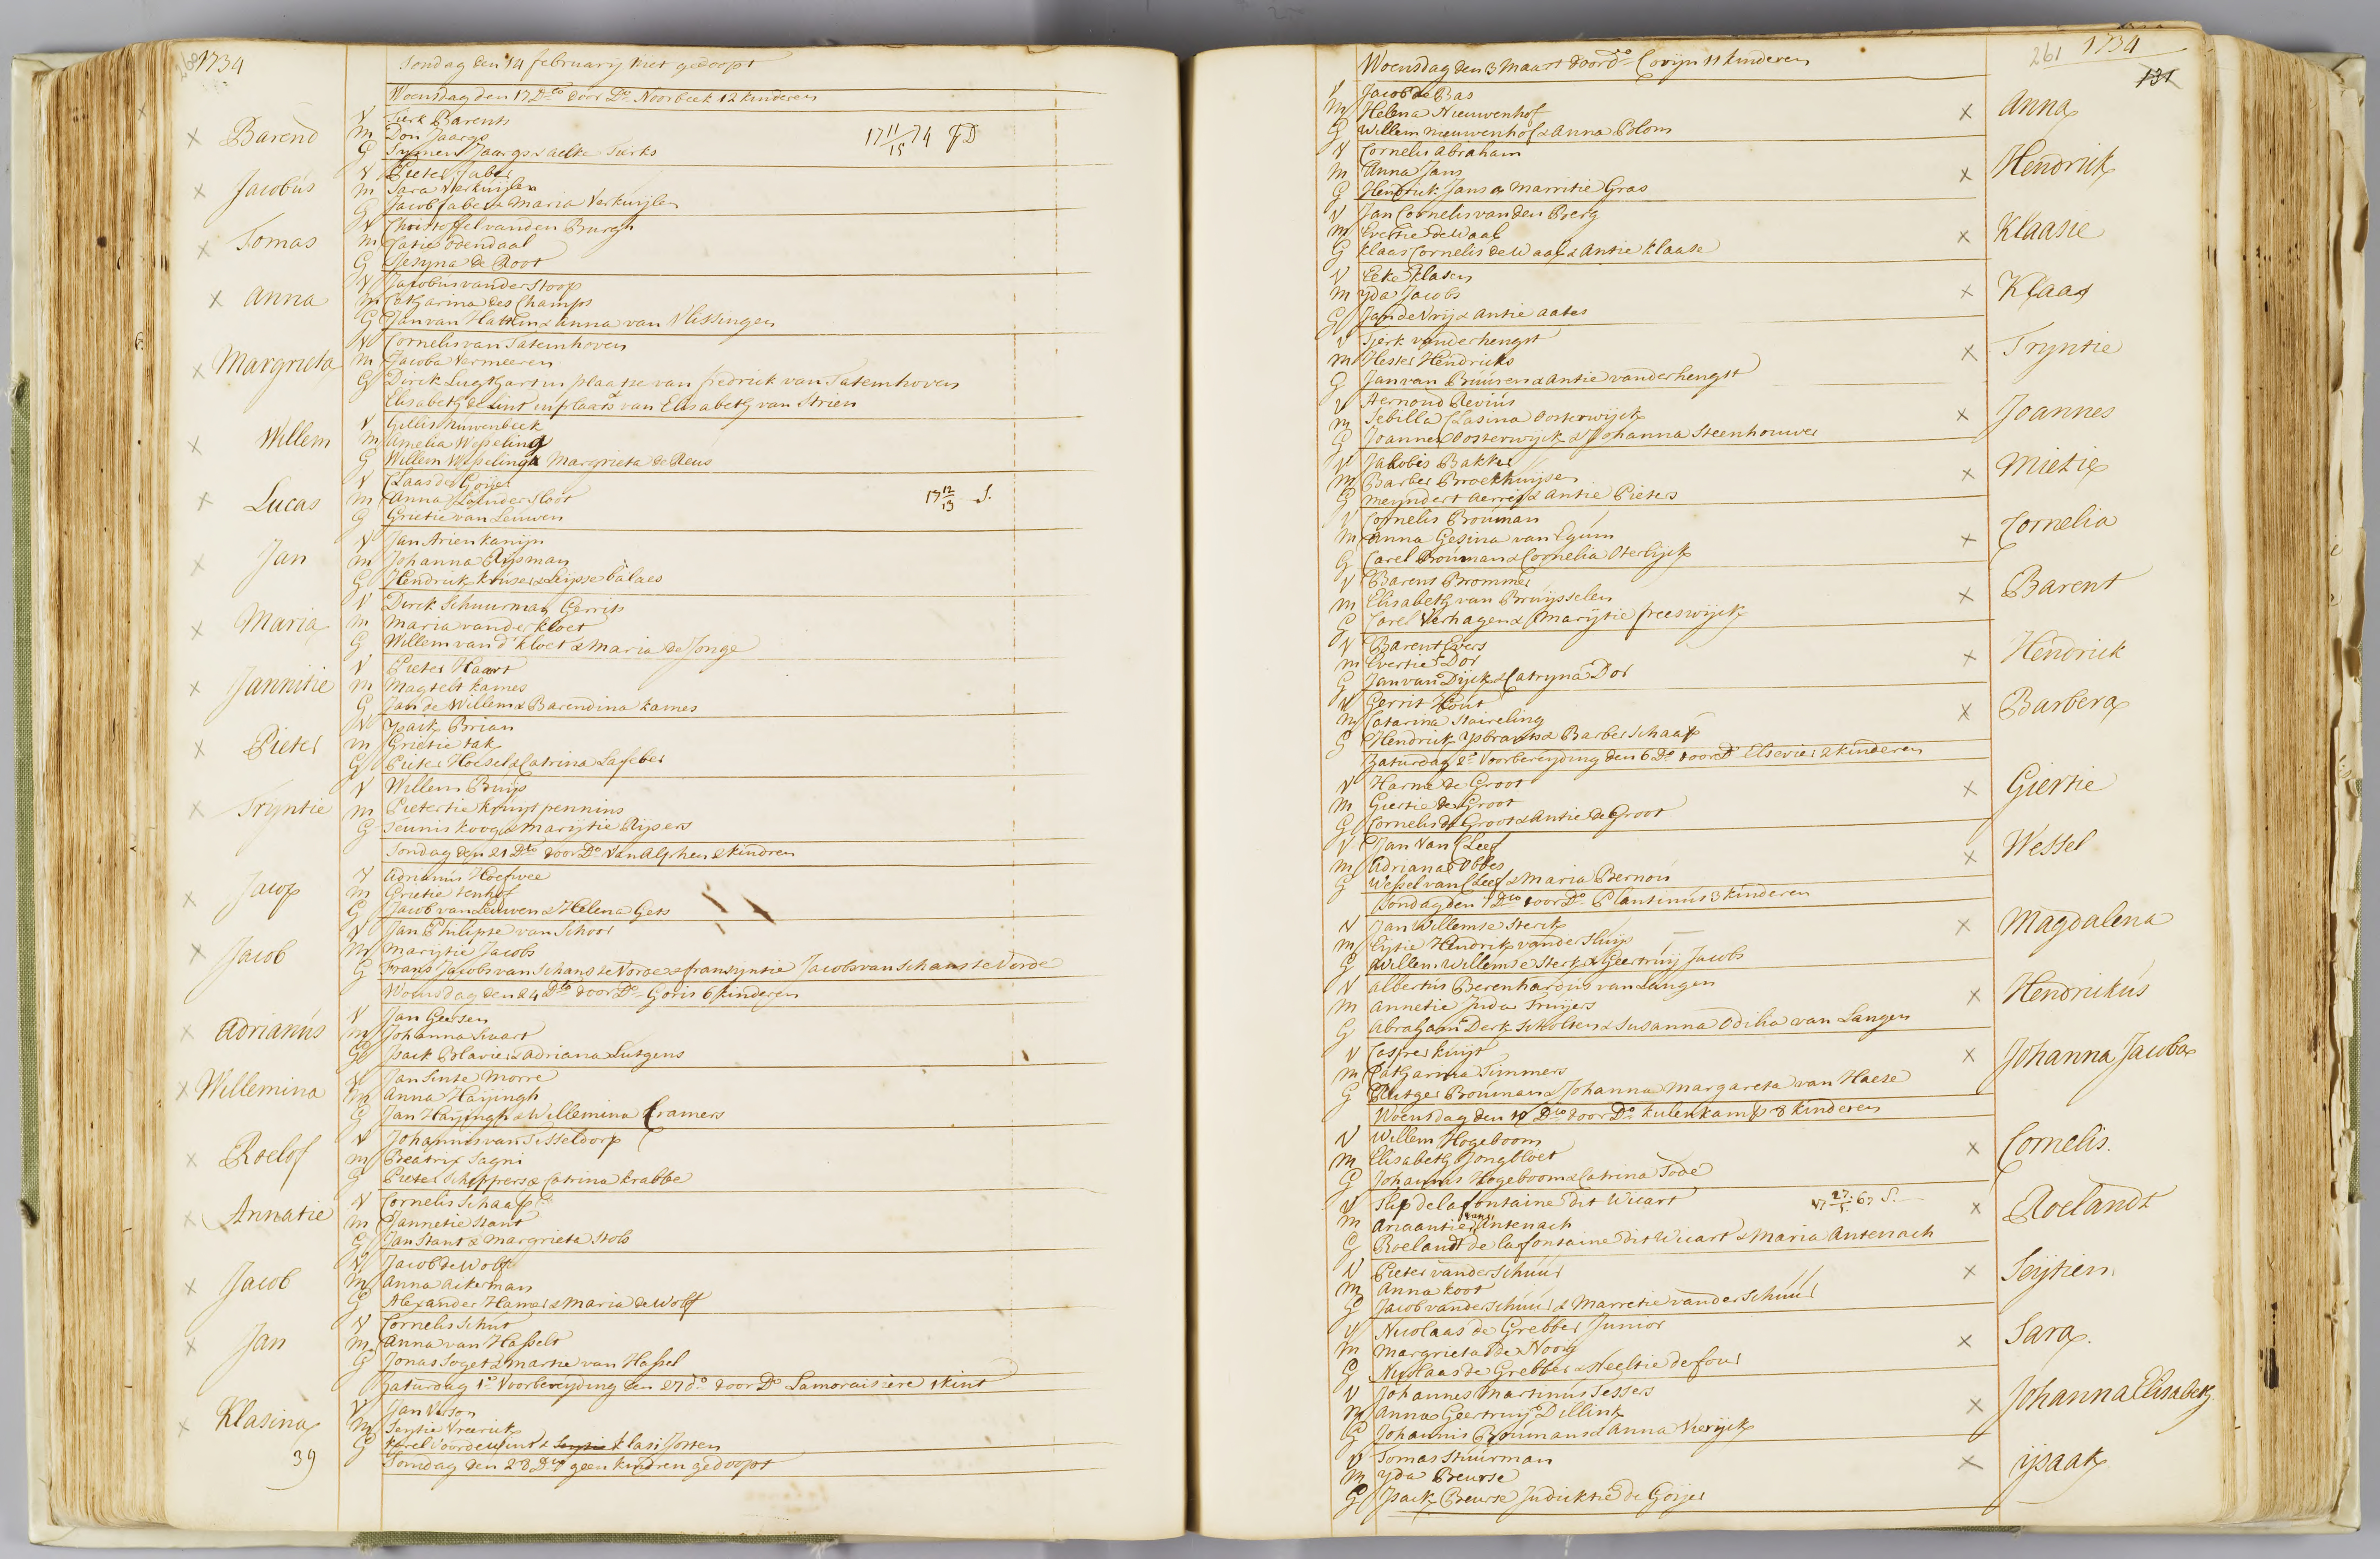 1734
Sondag den 14 february niet gedoopt
Woensdag den 17 Dto door Do Noorbeek 12 kinderen
Barend
V Tierk Barents
M Don Jaargs
G Jaargs & aelke Tierks
17 11/15 74 D
Jacobus
V Pieter faber
M Sara Verkuijlen
G Jacob faber & Maria Verkuijlen
Tomas
V Christoffel vanden Burgh
M Jatie odendaal
G Gesyna de Root
Anna
V Jacobus vander Stoop
M Catharina des Champs
G Jan van Hattem & anna van Vlissingen
Margrieta
V Cornelis van Tatemhoven
M Jacoba Vermeeren
G Dirck Lugthart in plaatse van fredrick van Tatemhoven
Elisabeth de Lint in plaats van Elisabeth van Strien
Willem
V Gillis Nuwenbeek
M Amelia Wesseling
G Willem Wesseling & Margrieta de Reus
Lucas
V Claas de Goijer
M Anna vander Sloot
G Grietie van Leuwen
17 12/13 S.
Jan
V Jan Arien kanijn
M Johanna Rijsman
G Hendrick kruser & Leijsse balaes
Maria
V Dirck Schuurman Gerrits
M Maria vander kloet
G Willem van d' kloet & Maria de Jonge
Jannitie
V Pieter Haart
M Magtelt kames
G Jan de Willem & Barendina kames
Pieter
V Ysaik Brian
M Grietie tak
G Pieter Hoesel & Catrina Lafeber
Tryntie
V Willem Buijs
M Pietertie kruijspennins
G Teunis koog & Marijtie Rijsers
Sondag den 21 Dto door Do Van Alphen 2 kindren
Jacop
V Adrianus Hoefwee
M Grietie tenhof
G Jacob van Leuwen & Helena Gets
Jacob
V Jan Philipse van Schoor
M Marijtie Jacobs
G Frans Jacobs van Schans te Vorde & fransijntie Jacobs van Schans te Vorde
Woensdag den 24 Dto door Do Goris 6 kinderen
Adrianus
V Jan Geersen
M Johanna Swart
G Isack Blavier & Adriana Lutgens
Willemina
V Jan Sinte Morre
M Anna Haijingh
G Jan Haijingh & Willemina Cramers
Roelof
V Johannis van Tesseldorp
M Beatrix Sagni
G Pieter Scheppers & Catrina krabbe
Annatie
V Cornelis Schaap
M Jannetie Stant
G Jan Stant & Margrieta Stols
Jacob
V Jacob de Wolff
M Anna Ackerman
G Alexander Hamer & Maria de Wolff
Jan
V Cornelis Schut
M Anna van Hasselt
G Jonas Soget & Martie van Hassel
Zaturdag 1e Voorbereyding den 27 do door Do Lamoraisiere 1 kint
Klasina
V Jan Verson
M Seijtie Vreerick
G karel Voordewint & klasi Josten
Sondag den 28 Dto geen kindren gedoopt
39
261 1734
131
Woensdag den 3 Maart door Do Covijn 11 kinderen
V Jacob de Bas
M Helena Nieuwenhof
G Willem nieuwenhof & Anna Blom
Anna
V Cornelis Abraham
M Anna Jans
G Hendrick Jans & Marritie Gras
Hendrick
V Jan Cornelis van den Berg
M Evertie de Waal
G klaas Cornelis de Waal & Antie klaase
Klaasie
V Eeke klasen
M yda Jacobs
G Jan de Vrij & Antie aates
Klaas
V Tierk vander hengst
M Hester Hendricks
G Jan van Buuren & Antie vander hengst
Tryntie
V Aernoud Revius
M Sebilla Clasina Oosterwijck
G Joannes Oosterwyck & Johanna Steenhouwer
Joannes
V Jacobis Bakker
M Barber Broekhuijsen
G Meyndert Aerris & Antie Pieters
Mietie
V Cornelis Brouman
M Anna Gesina van Egum
G Carel Brouman & Cornelia Oterlijck
Cornelia
V Barent Brommer
M Elisabeth van Bruijsselen
G Carel Verhagen & Marijtie freeswijck
Barent
V Barent Evers
M Evertie Dor
G Jan van Dijck & Catryna Dor
Hendrick
V Gerrit Hout
M Catarina Staireling
G Hendrick Ysbrants & Barber Schaap
Barbera
Zaturdag 2e Voorbereyding den 6 Do door Do Elsevier 2 kinderen
V Harme de Groot
M Giertie de Groot
G Cornelis de Groot & Antie de Groot
Giertie
V Jan Van Cleef
M Adriana Obbes
G Wessel van Cleef & Maria Bernou
Wessel
Sondag den 7 Dto door Do Plantinus 3 kinderen
V Jan Willemse Sterk
M Eytie Hendriks vander Sluijs
G Willem Willemse Sterk & Geertruij Jacobs
Magdalena
V albertus Berenhardus van Langen
M Annetie Juda Truijers
G Abraham Derk Scholten & Susanna Odilia van Langen
Hendrickus
V Casper kuijt
M Catharina Timmers
G Rutger Brouman & Johanna Margareta van Haese
Johanna Jacoba
Woensdag den 10 Dto door Do kulenkamp 8 kinderen
V Willem Hogeboom
M Elisabeth Jongbloet
G Johannis Hogeboom & Catrina Tode
Cornelis.
V Flip de la fontaine dit Wicart
17 27/5 67 S.
M Ariaantie van Antenach
G Roelandt de la fontaine dit Wicart & Maria Antenach
Roelandt
V Pieter vander Schuur
M Anna koot
G Jacob vander Schuur & Marretie vander Schuur
Seijtien
V Nicolaas de Grebber Junior
M Margrieta de Nooij
G Nicolaas de Grebber & Neeltie defour
Sara.
V Johannes Martinus Tessers
M Anna Geertruij Dillink
G Johannis Broumans & Anna Vierijck
Johanna Elisabeth
V Tomas Stuurman
M yda Breurse
G Isack Breurse Judickie de Goijer
ijsaak